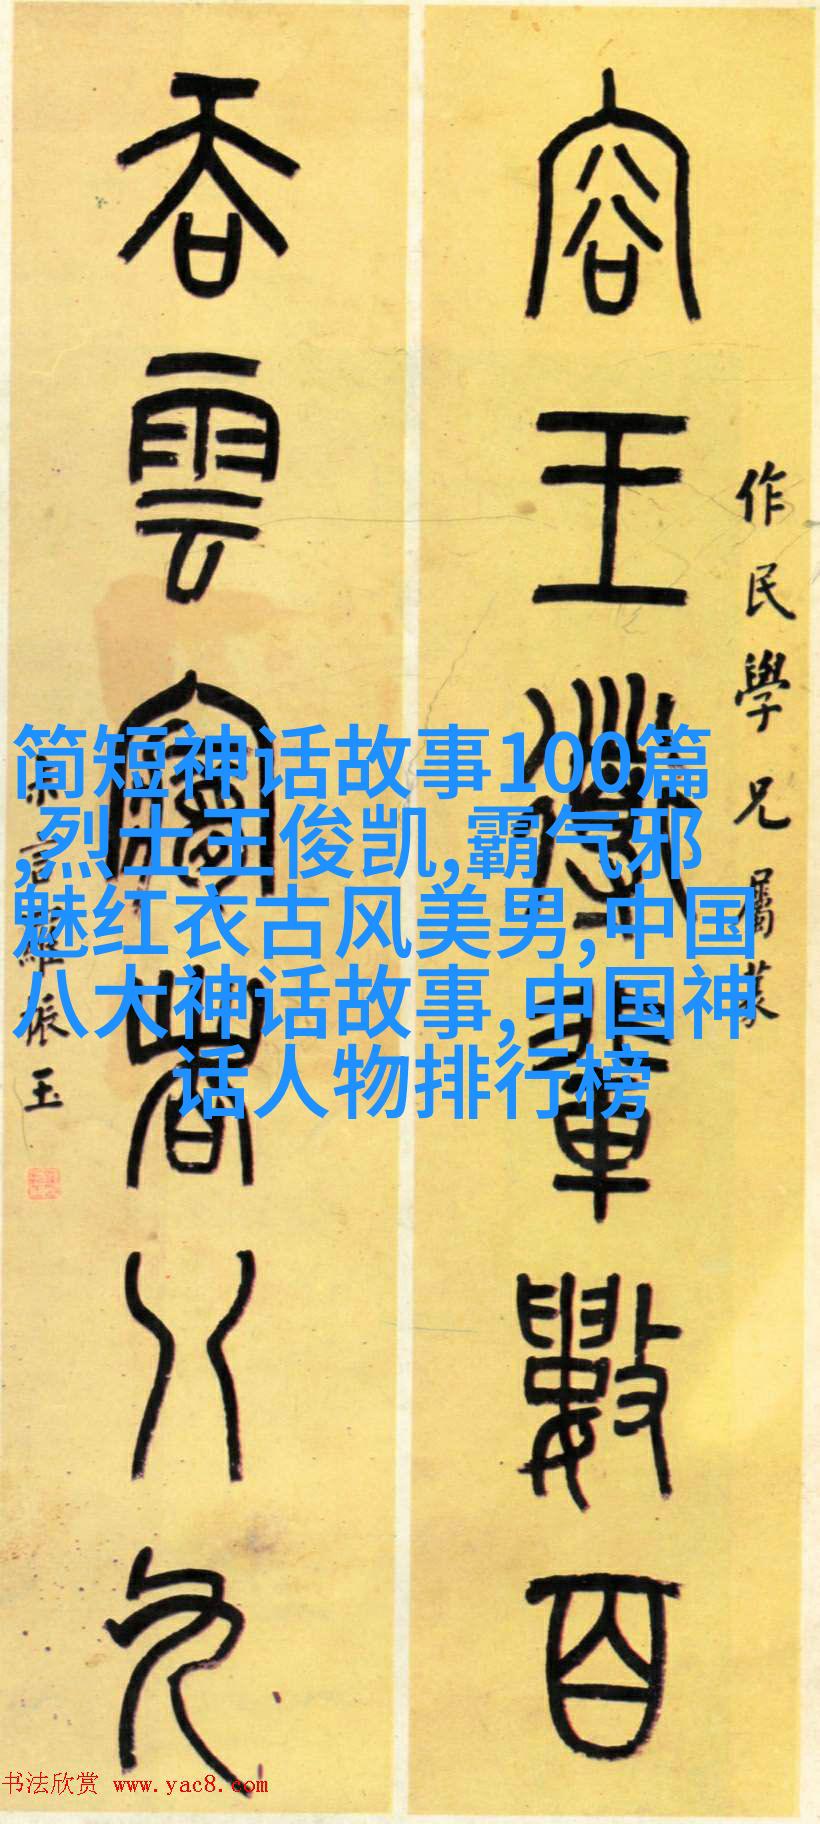 容王導輩數百
作民學兄屬篆
吞雲夢者八九
振玉
简短神话故事100篇
,烈士王俊凯,霸气邪
魅红衣古风美男,中国
八大神话故事,中国神
话人物排行榜
书法欣赏 www.yac8.com